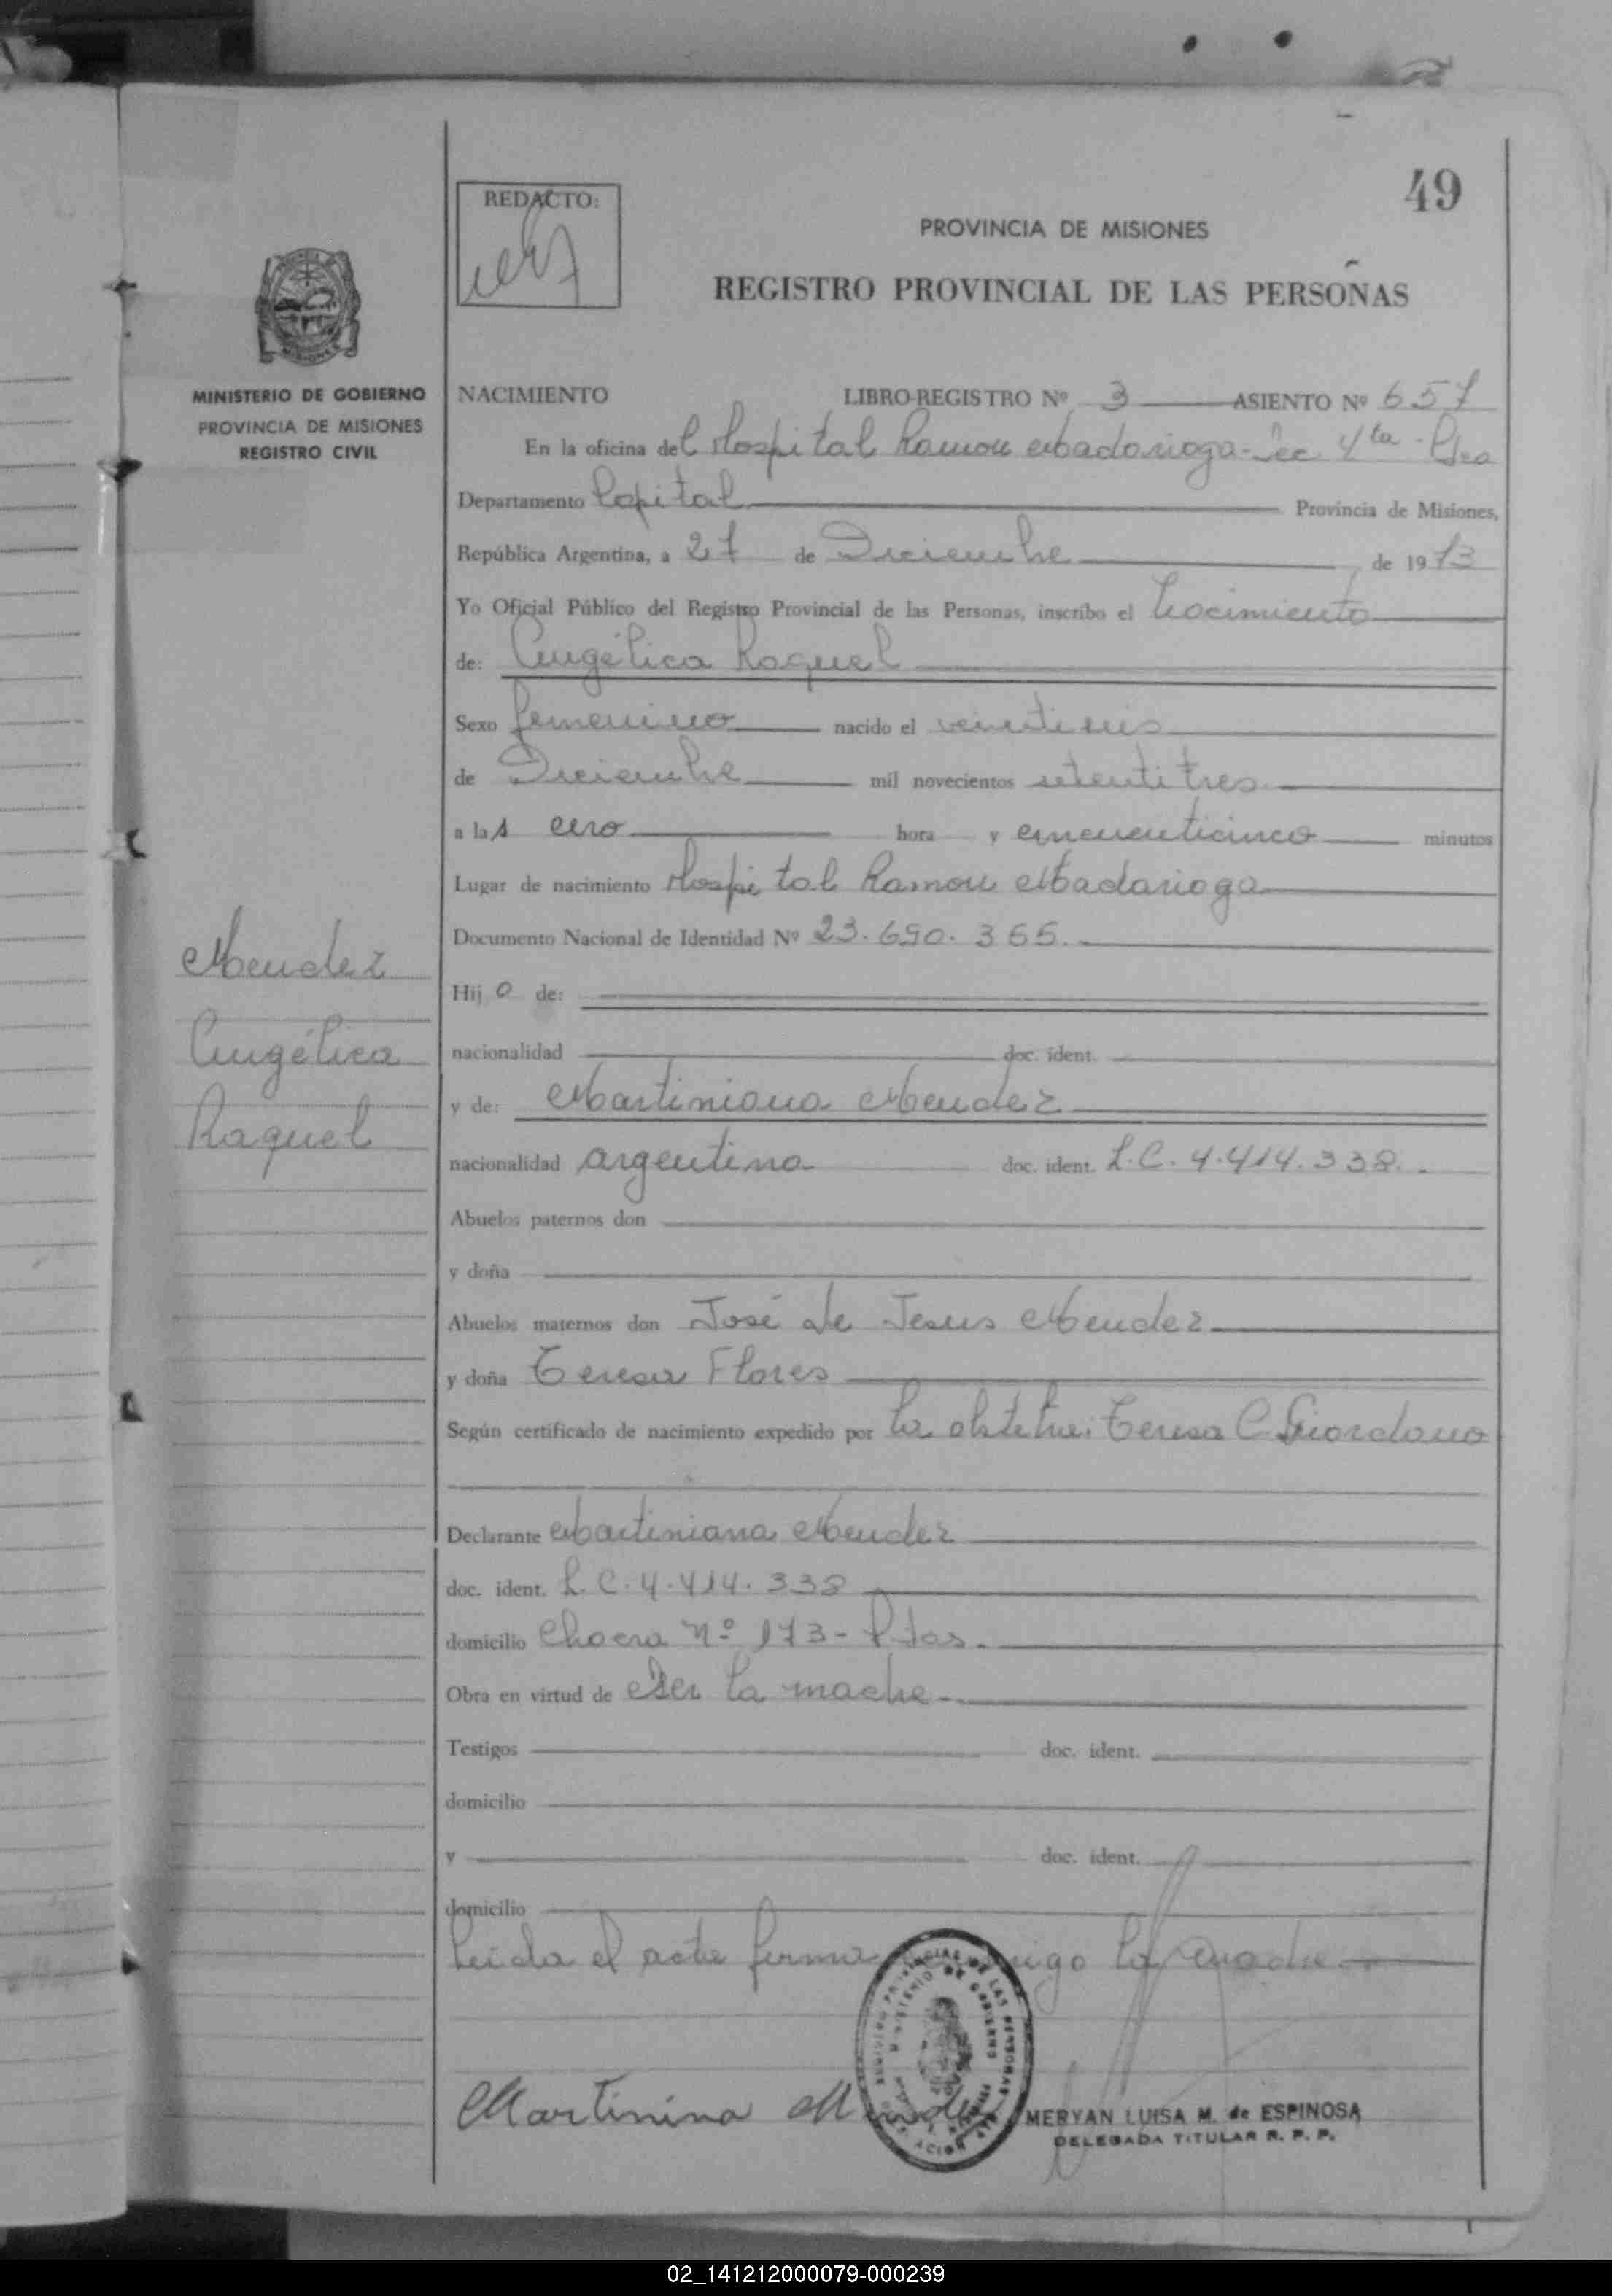 49
REDACTO:
PROVINCIA DE MISIONES
REGISTRO PROVINCIAL DE LAS PERSONAS
MINISTERIO DE GOBIERNO
PROVINCIA DE MISIONES
REGISTRO CIVIL
NACIMIENTO LIBRO-REGISTRO Nº 3 ASIENTO Nº 657
En la oficina del Hospital Ramon Madariaga - Sec. 4ta -
Departamento Capital Provincia de Misiones,
República Argentina, a 27 de Diciembre de 1973
Yo Oficial Público del Registro Provincial de las Personas, inscribo el nacimiento
de: Angélica Raquel
Sexo femenino nacido el veintiseis
de Diciembre mil novecientos setentitres
a las cero hora y cincuenticinco minutos
Lugar de nacimiento Hospital Ramon Madariaga
Documento Nacional de Identidad Nº 23.690.365.
Mendez
Angélica
Raquel
Hijo de:
nacionalidad doc. ident.
y de: Martiniana Mendez
nacionalidad argentina doc. ident. L.C. 4.414.338.
Abuelos paternos don
y doña
Abuelos maternos don José de Jesus Mendez
y doña Teresa Flores
Según certificado de nacimiento expedido por la obstetra: Teresa C. Giordano
Declarante Martiniana Mendez
doc. ident. L.C. 4.414.338
domicilio Chacra nº 173 - Pdas.
Obra en virtud de ser la madre
Testigos doc. ident.
domicilio
y doc. ident.
domicilio
Leida el acta firma conmigo la madre
Martinina Mendez
MERYAN LUISA M. de ESPINOSA
DELEGADA TITULAR R. P. P.
02_141212000079-000239